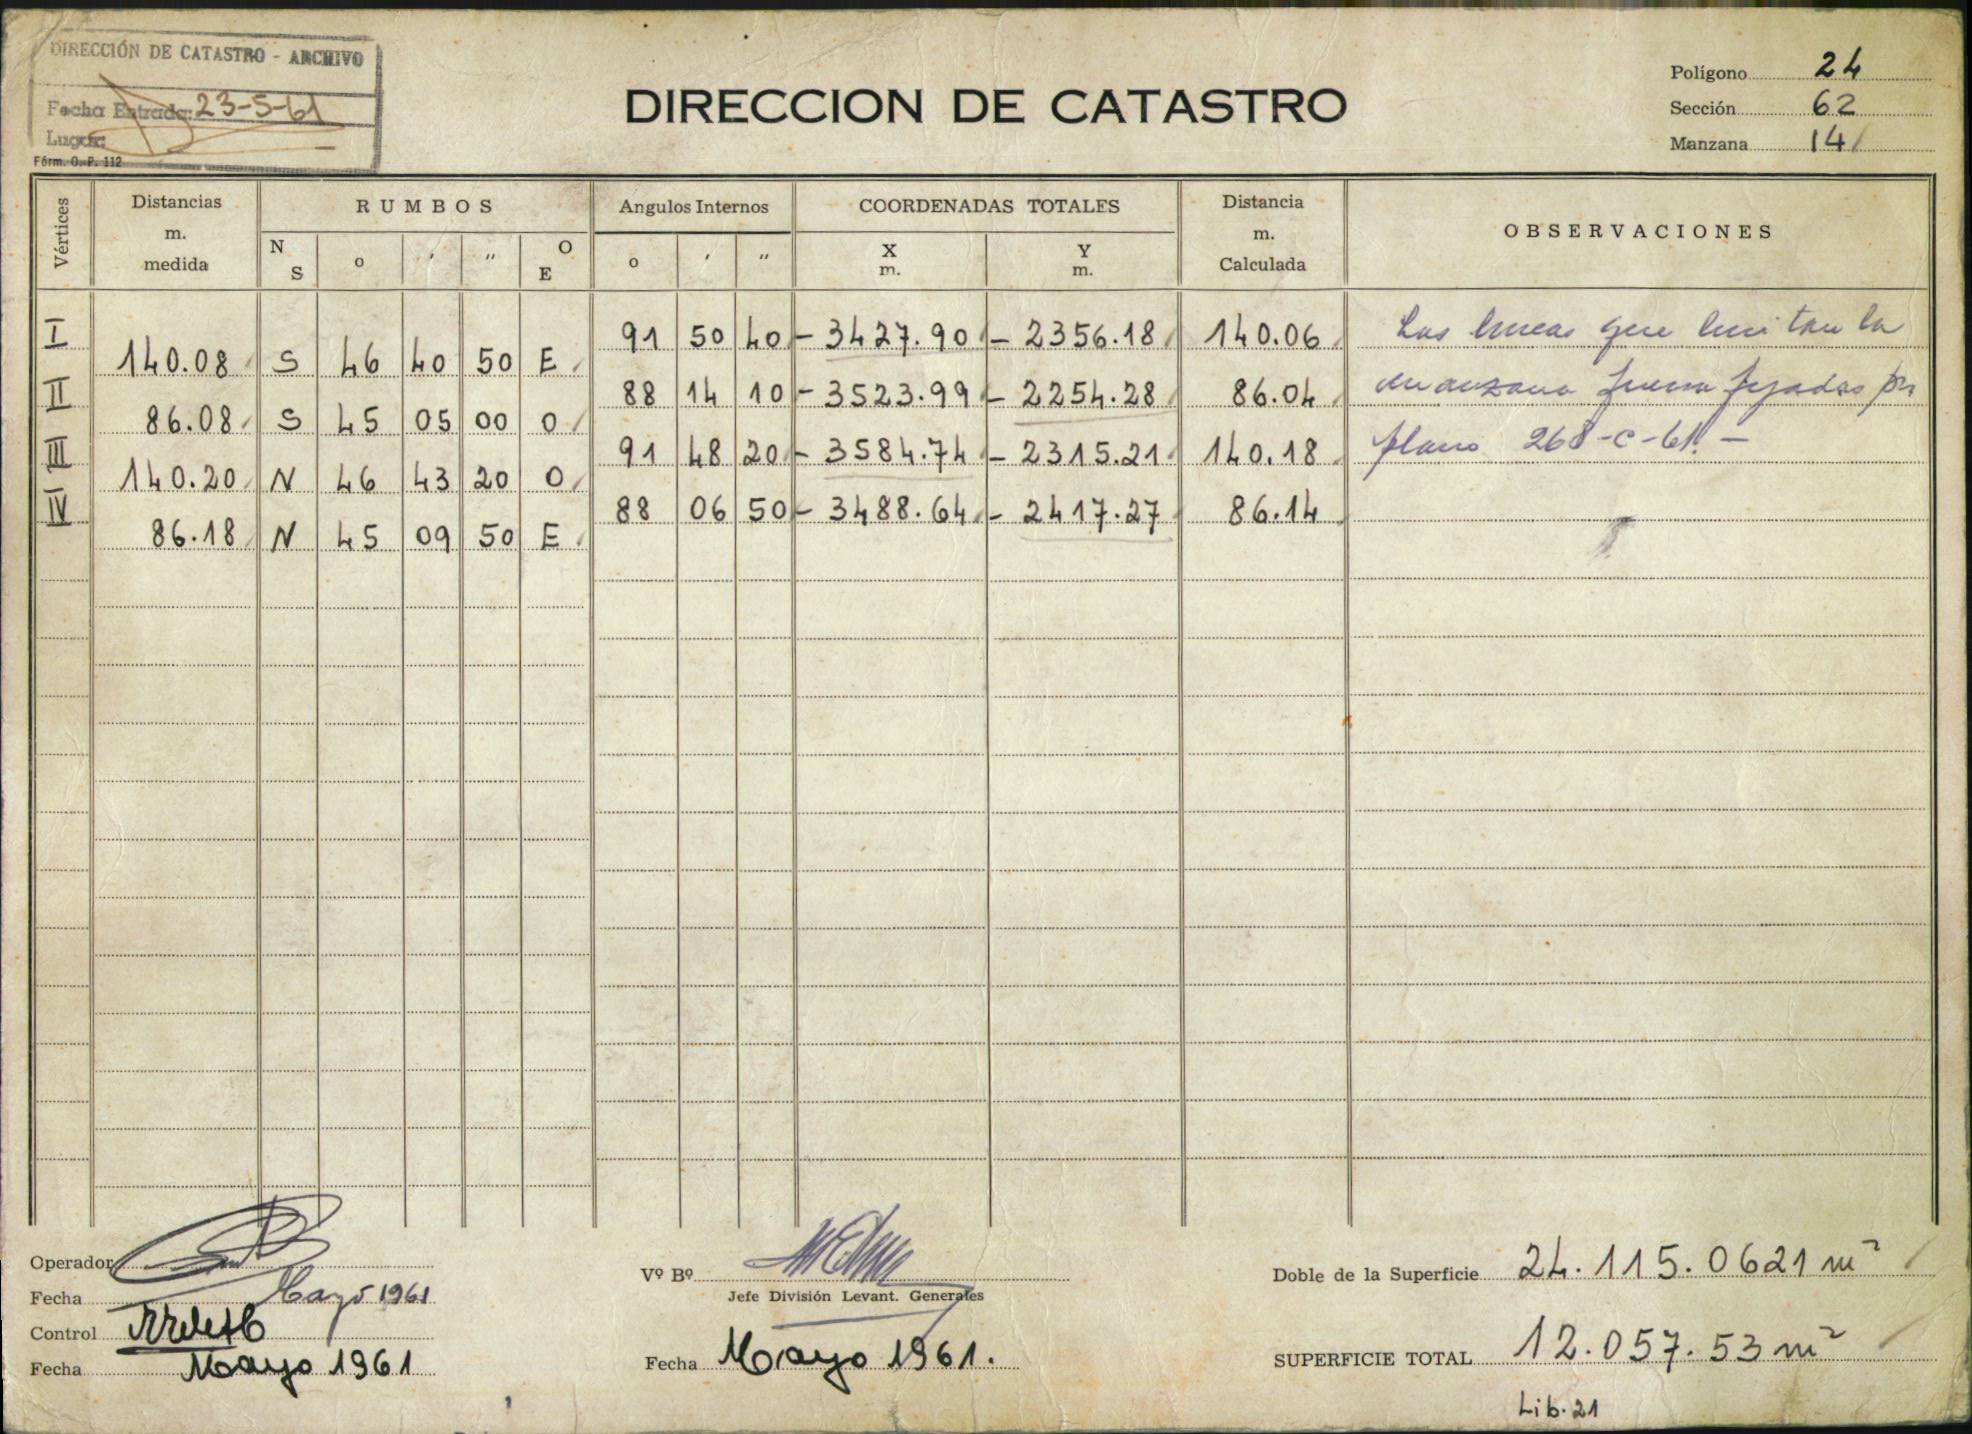 DIRECCIÓN DE CATASTRO - ARCHIVO
Fecha Entrada: 23-5-61
Lugar:
Fórm. O. P. 112
DIRECCION DE CATASTRO
Polígono 24
Sección 62
Manzana 14
Vértices Distancias m. medida RUMBOS Angulos Internos COORDENADAS TOTALES Distancia m. Calculada OBSERVACIONES
N S o ′ ″ O E o ′ ″ X m. Y m.
I 91 50 40 - 3427.90 - 2356.18 140.06 Las lineas que limitan la
140.08 S 46 40 50 E
II 88 14 10 - 3523.99 - 2254.28 86.04 manzana fueron fijadas por
86.08 S 45 05 00 O
III 91 48 20 - 3584.74 - 2315.21 140.18 plano 268-C-61. -
140.20 N 46 43 20 O
IV 88 06 50 - 3488.64 - 2417.27 86.14
86.18 N 45 09 50 E
Operador
Fecha Mayo 1961
Control
Fecha Mayo 1961
Vº Bº
Jefe División Levant. Generales
Fecha Mayo 1961.
Doble de la Superficie 24.115.0621 m²
SUPERFICIE TOTAL 12.057.53 m²
Lib. 21